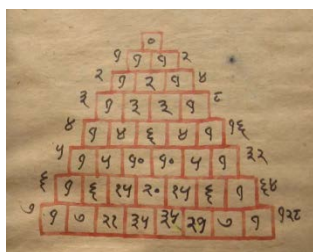 ०
१ १ १ २
२ १ २ १ ४
३ १ ३ ३ १ ८
४ १ ४ ६ ४ १ १६
५ १ ५ १० १० ५ १ ३२
६ १ ६ १५ २० १५ ६ १ ६४
७ १ ७ २१ ३५ ३५ २१ ७ १ १२८